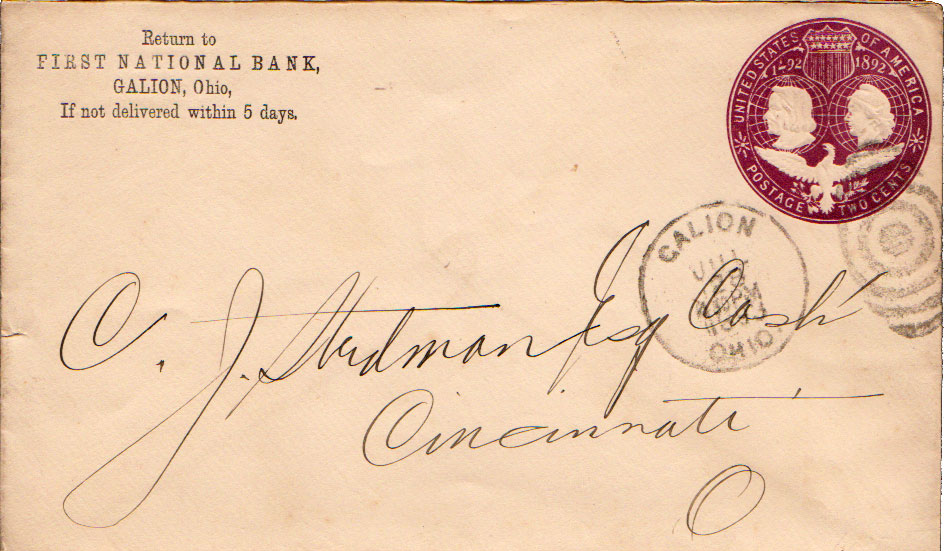 Return to
FIRST NATIONAL BANK,
GALION, Ohio,
If not delivered within 5 days.
UNITED STATES OF AMERICA
1492 1892
POSTAGE TWO CENTS
GALION
JUL
OHIO
C. J. Stedman Esq Cash'
Cincinnati
O